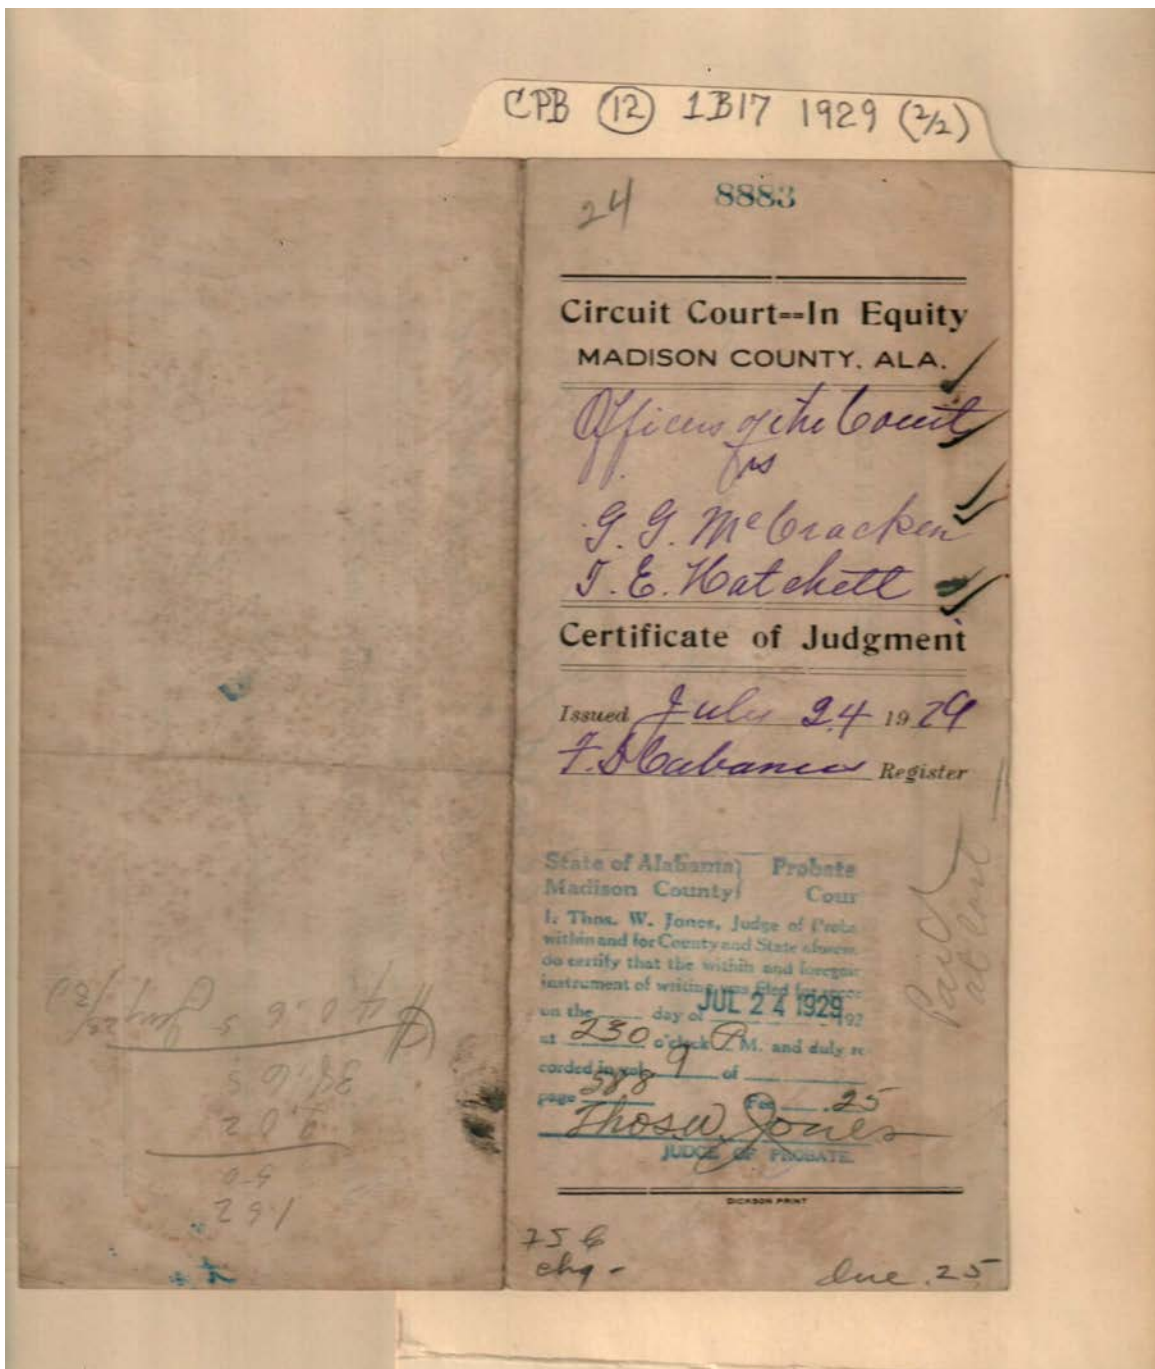 CPB (12) 1B17 1929 (2/2)
24 8883
Circuit Court--In Equity
MADISON COUNTY, ALA.
Officers of the Court
vs
G. G. McCracken
T. E. Hatchett
Certificate of Judgment
Issued July 24 1929
F. D Cabaniss Register
State of Alabama) Probate
Madison County) Cour
I, Thos. W. Jones, Judge of Proba
within and for County and State
do certify that the within and foregoi
instrument of writing was filed for recor
on the day of JUL 24 1929 192
at 230 o'clock P M. and duly re
corded in vol 9 of
page 588 Fee .25
Thos W. Jones
JUDGE OF PROBATE.
DICKSON PRINT
Paid
at Court
75 6
chg -
due .25
1.52
50
2.02